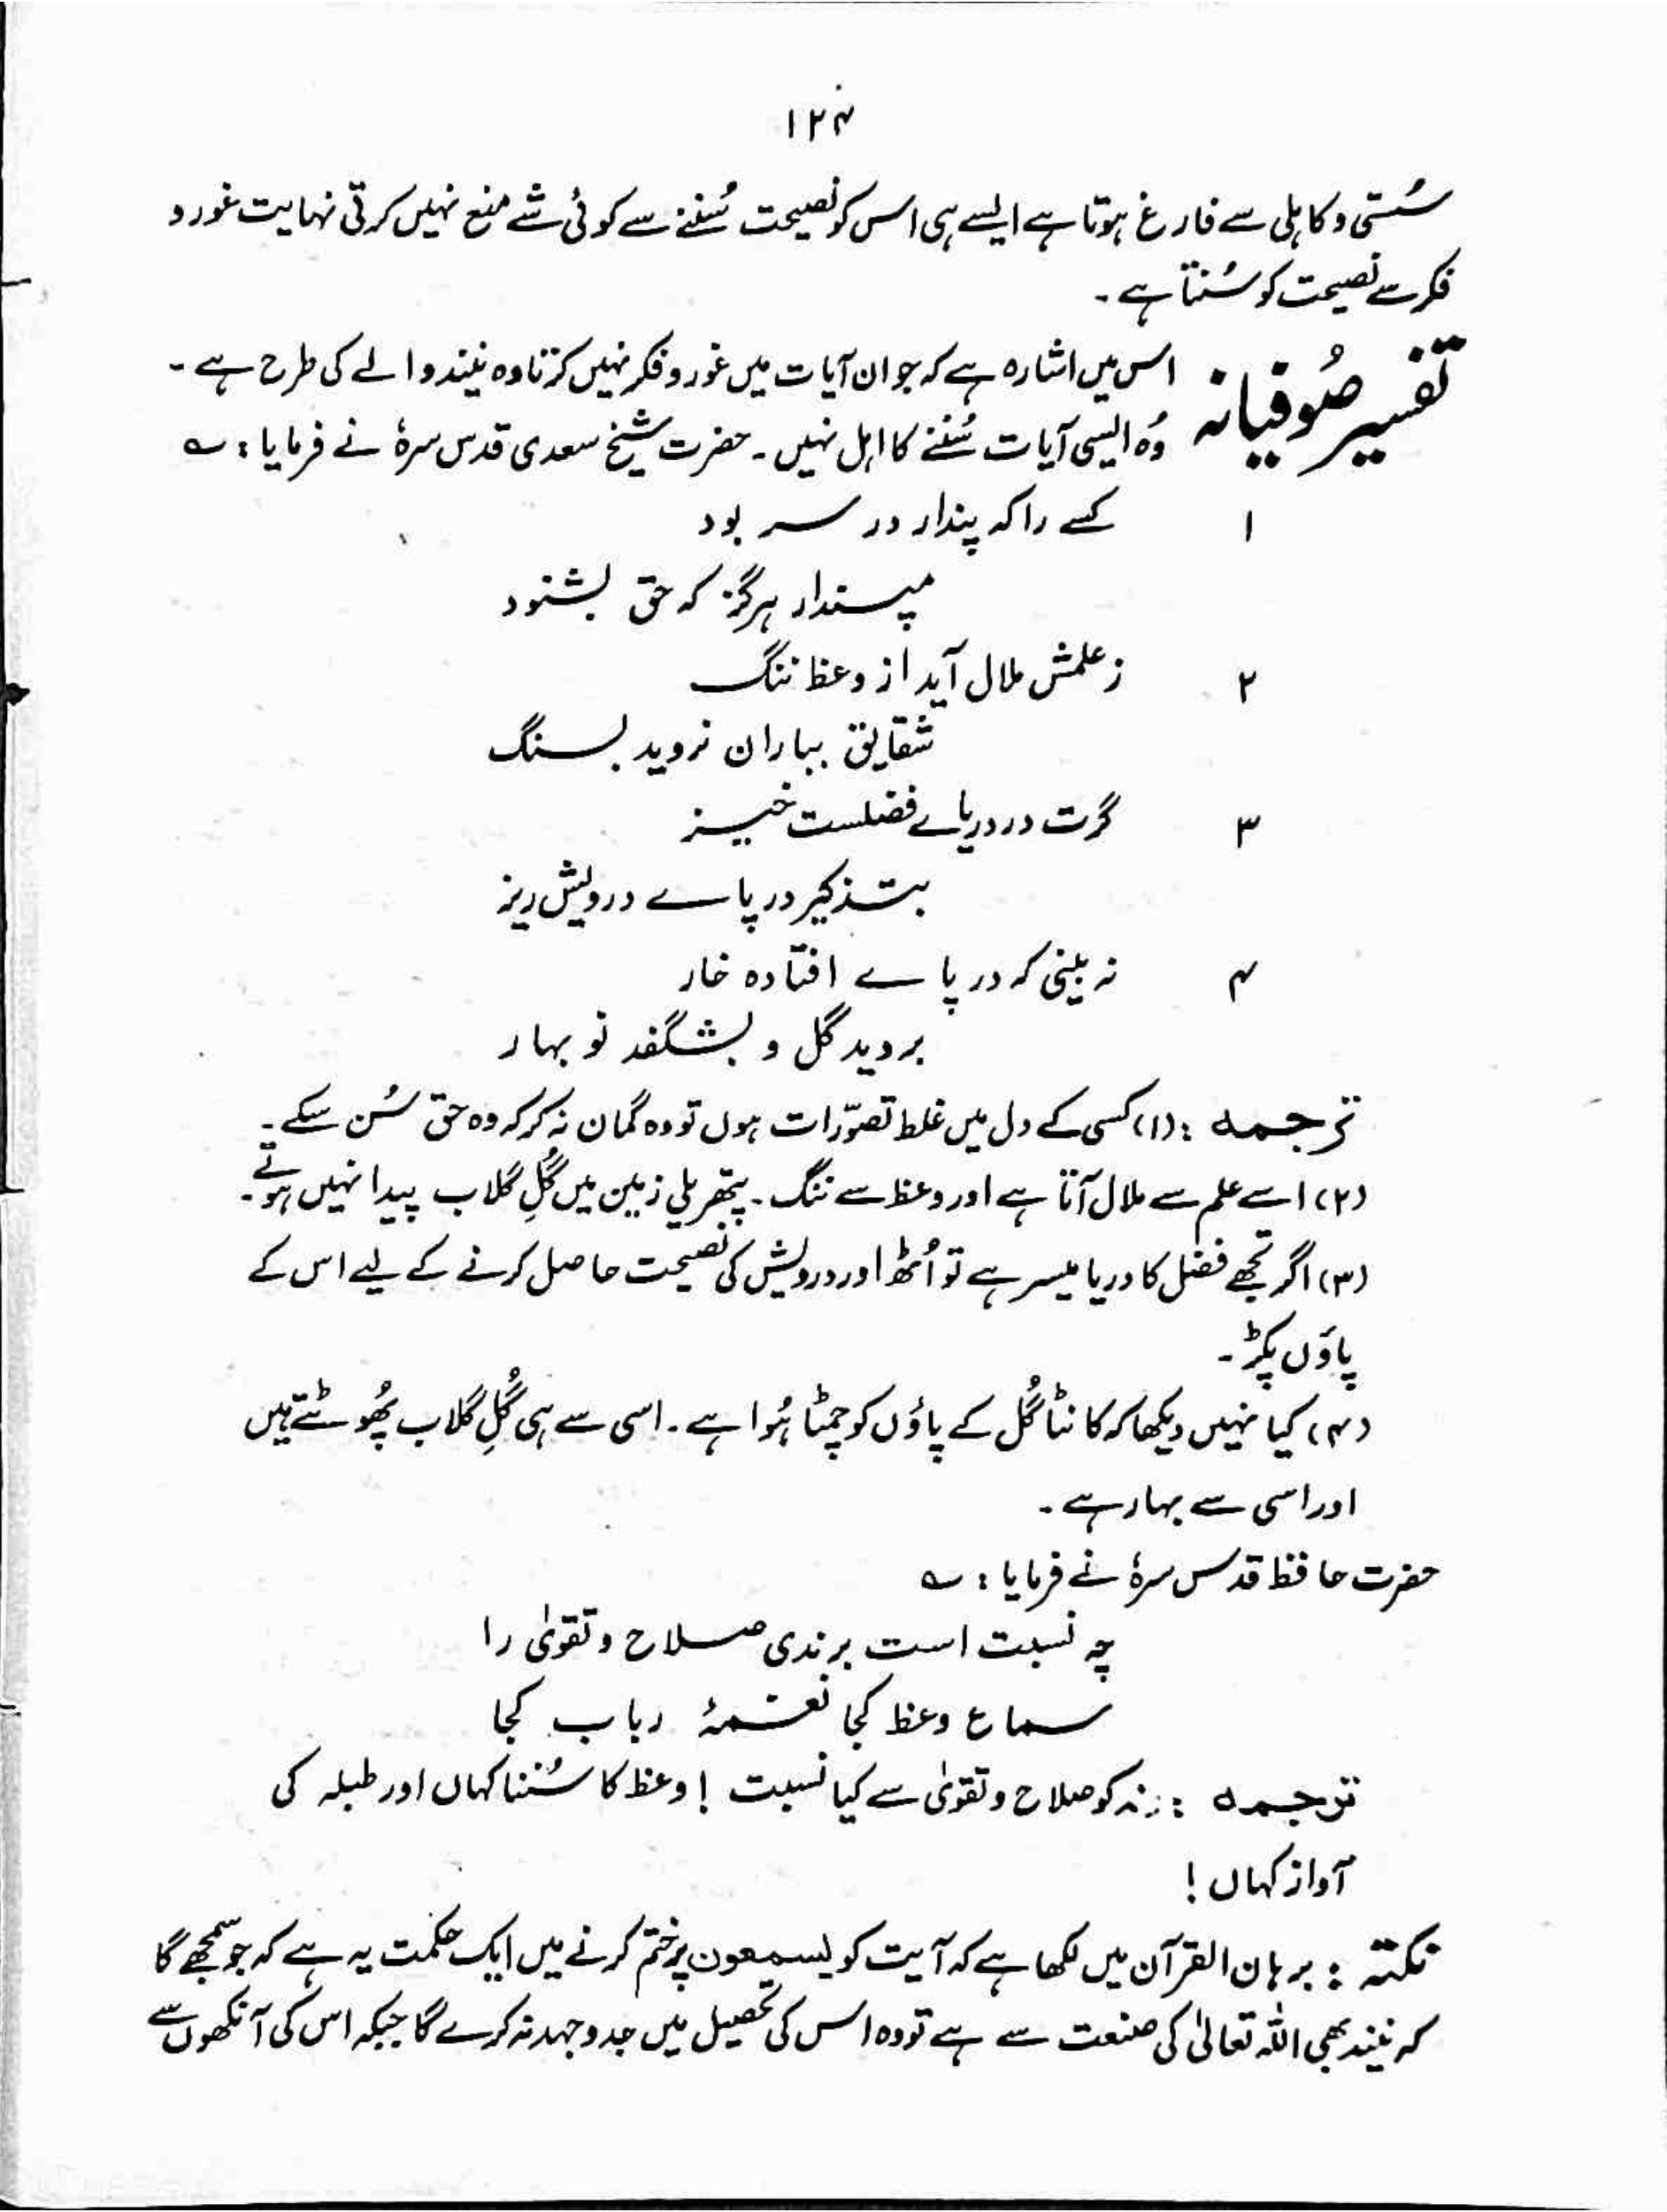 ۱۲۴
سُستی و کاہلی سے فارغ ہوتا ہے ایسے ہی اس کو نصیحت سُننے سے کوئی شے منع نہیں کرتی نہایت غور و
فکر سے نصیحت کو سُنتا ہے ۔
تفسیر صُوفیانہ اس میں اشارہ ہے کہ جو ان آیات میں غور و فکر نہیں کرتا وہ نیند والے کی طرح ہے ۔
وُہ ایسی آیات سُننے کا اہل نہیں ۔ حضرت شیخ سعدی قدس سرہٗ نے فرمایا : ؎
۱ کسے را کہ پندار در سر بود
مپندار ہرگز کہ حق بشنود
۲ ز علمش ملال آید از وعظ ننگ
شقایق بباراں نروید بسنگ
۳ گرت در دریاے فضلست خیز
بتذکیر در پاے درویش ریز
۴ نہ بینی کہ در پاے افتادہ خار
بروید گل و بشگفد نوبہار
ترجمہ : (۱) کسی کے دل میں غلط تصوّرات ہوں تو وہ گمان نہ کر کہ وہ حق سُن سکے ۔
(۲) اسے علم سے ملال آتا ہے اور وعظ سے ننگ ۔ پتھریلی زمین میں گُلِ گلاب پیدا نہیں ہوتے ۔
(۳) اگر تجھے فضل کا دریا میسر ہے تو اُٹھ اور درویش کی نصیحت حاصل کرنے کے لیے اس کے
پاؤں پکڑ ۔
(۴) کیا نہیں دیکھا کہ کانٹا گُل کے پاؤں کو چمٹا ہُوا ہے ۔ اسی سے ہی گُلِ گلاب پھُوٹتے ہیں
اور اسی سے بہار ہے ۔
حضرت حافظ قدس سرہٗ نے فرمایا : ؎
چہ نسبت است برندی صلاح و تقویٰ را
سماع وعظ کجا نغمۂ رباب کجا
ترجمہ : رند کو صلاح و تقویٰ سے کیا نسبت ! وعظ کا سُننا کہاں اور طبلہ کی
آواز کہاں !
نکتہ : برہان القرآن میں لکھا ہے کہ آیت کو یسمعون پر ختم کرنے میں ایک حکمت یہ ہے کہ جو سمجھے گا
کہ نیند بھی اللہ تعالیٰ کی صنعت سے ہے تو وہ اس کی تحصیل میں جدوجہد نہ کرے گا جبکہ اس کی آنکھوں سے